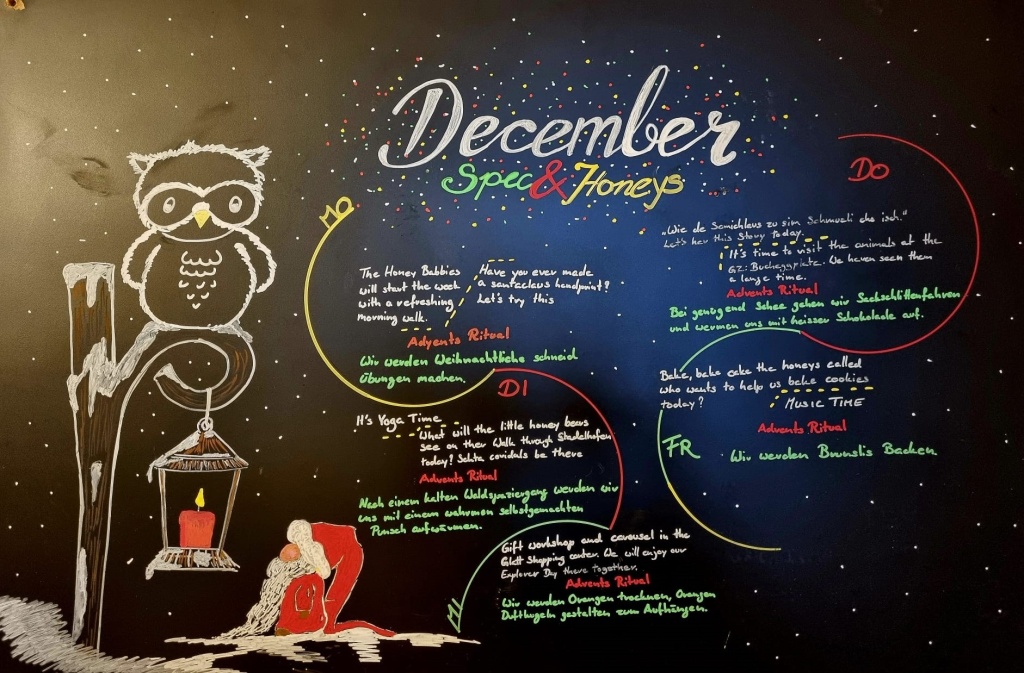 December
Spec & Honeys
MO
The Honey Babbies
will start the week
with a refreshing
morning walk.
Have you ever made
a santaclaus handprint?
Let's try this
Advents Ritual
Wir werden Weihnachtliche schneid
Übungen machen.
DI
It's Yoga Time
What will the little honey bears
see on ther Walk through Stadelhofen
today?
be there
Advents Ritual
Nach einem kalten Waldspaziergang werden wir
uns mit einem wahrmen selbstgemachten
Punsch aufwärmen.
MI
Gift workshop and carousel in the
Glatt Shopping center. We will enjoy our
Explorer Day there together.
Advents Ritual
Wir werden Orangen trocknen, Orangen
Duftkugeln gestalten zum Aufhängen.
DO
„Wie de Samichlaus zu sim Schmutzli cho isch."
Let's her this Story today.
It's time to visit the animals at the
GZ: Bucheggplatz. We haven seen them
a lange time.
Advents Ritual
Bei genugend Schee gehen wir Sackschlittenfahren
und wermen uns mit heissen Schokolade auf.
FR
Bake, bake cake the honeys called
who wants to help us bake cookies
today?
MUSIC TIME
Advents Ritual
Wir werden Brunslis Backen